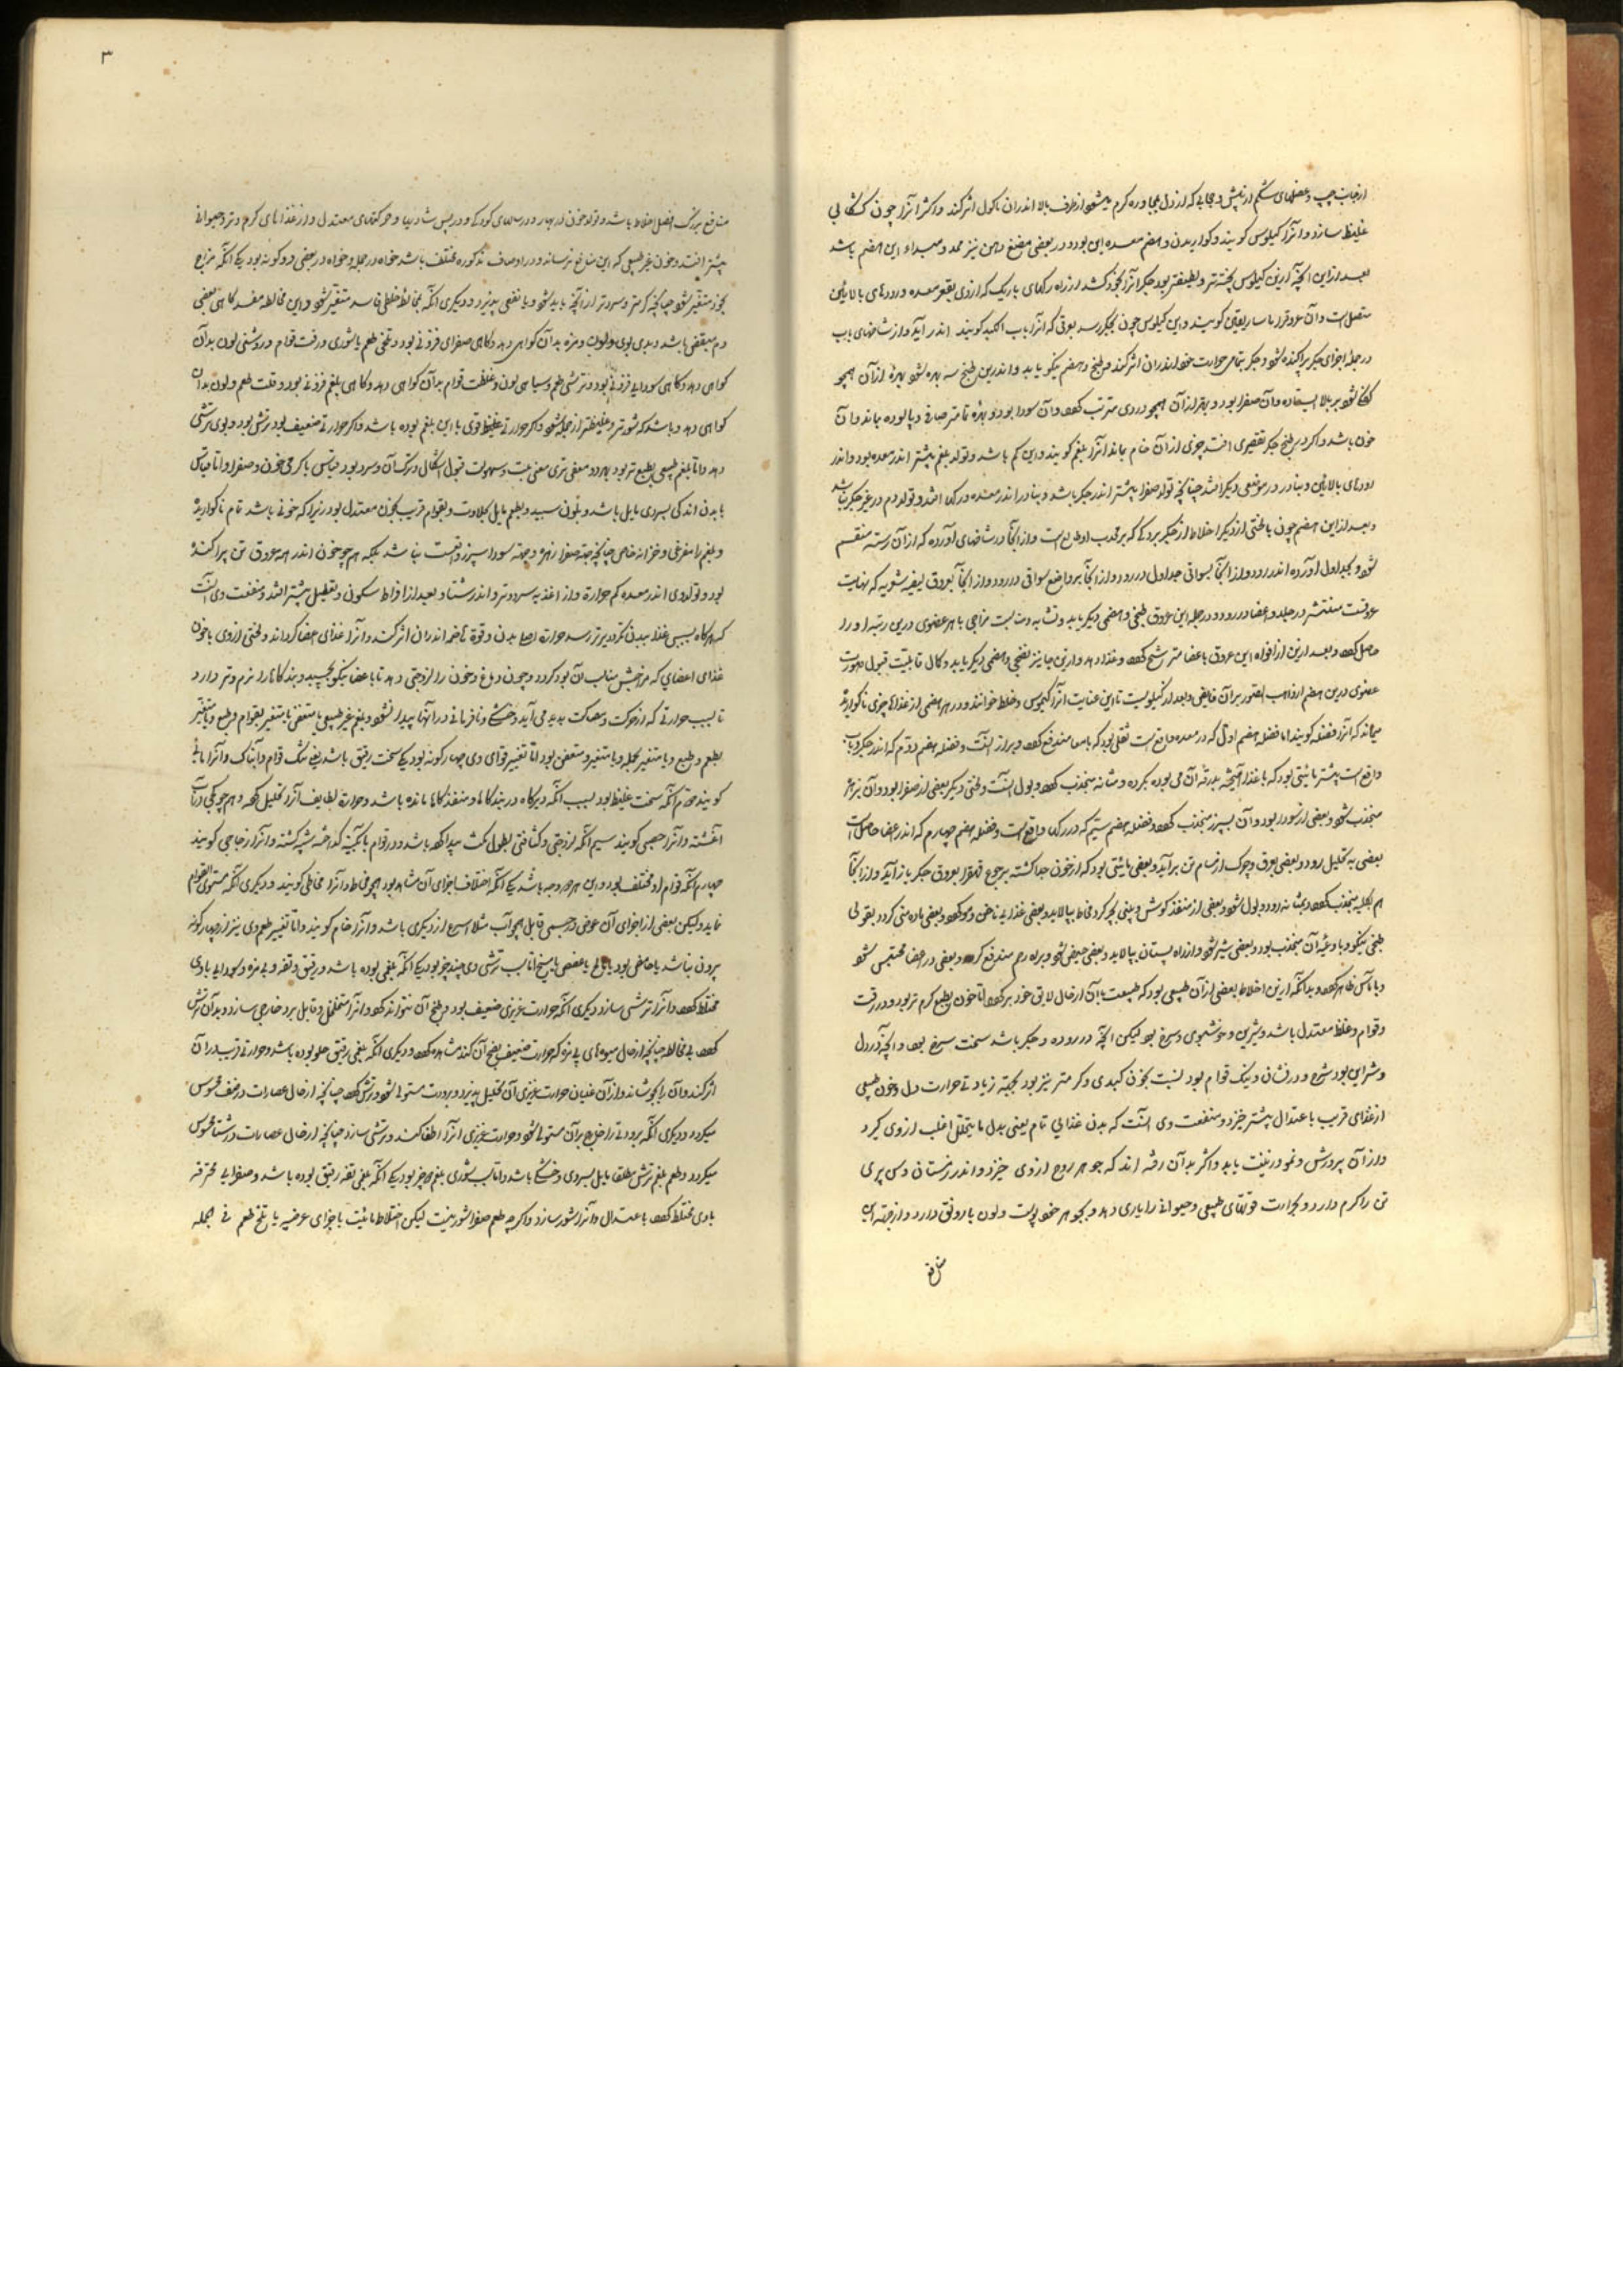 از جانب چپ و عضلهای شکم از پیش و حجابی که از دل بمجاوره گرم میشود از طرف بالا اندران ماکول اثر کند و اکثر آنرا چون کشکابی
غلیظ سازد و آنرا کیلوس گویند و گواریدن و هضم معده این بود و در بعضی مضغ دهن نیز ممد و مبداء این هضم باشد
بعد ازین آنچه ازین کیلوس پخته‌تر و لطیفتر بود جگر آنرا بخود کشد از راه رگهای باریک که از وی بقعر معده و رودهای بالائین
متصل است و آن عروق را ماساریقی گویند و این کیلوس چون بجگر رسد بعرقی که آنرا باب الکبد گویند اندر آید و از شاخهای باب
در جمله اجزای جگر پراکنده شود و جگر بتمامی حرارت خود اندران اثر کند و طبخ و هضم نیکو یابد و اندرین طبخ سه بهره شود بهرهٔ از آن همچو
کفک شود بر بالا ایستاده و آن صفرا بود و بهرهٔ از آن همچو دردی مترتب گردد و آن سودا بود و بهرهٔ تمامتر صافی و پالوده بماند و آن
خون باشد و اگر در طبخ جگر تقصیری افتد چیزی از آن خام بماند آنرا بلغم گویند و این کم باشد و تولد بلغم بیشتر اندر معده بود و اندر
رودهای بالائین و بنادر در موضعی دیگر افتد چنانچه تولد صفرا بیشتر اندر جگر باشد و بنادر اندر معده و رگها افتد و تولد دم در غیر جگر نباشد
و بعد ازین هضم چون با لختی از دیگر اخلاط از جگر برگی که بر محدب او طالع است و از آنجا در شاخهای آورده که از آن رسته منقسم
شود و بجداول آورده اندر رود و از آنجا بسواقی جداول در رود و از آنجا برواضع سواقی در رود و از آنجا بعروق لیفیه شعریه که نهایت
عروقست منتشر در جمله اعضا در رود و در جمله این عروق طبخی و هضمی دیگر یابد و تشابه و مناسبت مزاجی با هر عضوی درین رتبه او را
حاصل گردد و بعد ازین از افواه این عروق باعضا مترشح گردد و غذا دهد و از این جا نیز نضجی و هضمی دیگر یابد و کمال قابلیت قبول صورت
میماند که آنرا فضله گویند اما فضله هضم اول که در معده واقع است ثفلی بود که بامعا مندفع گردد و براز آنست و فضله هضم دوم که اندر جگر و باب
واقع است بیشتر مائیتی بود که با غذا آمیخته بدرقه آن می بوده بگرده و مثانه منجذب گردد و بول آنست و لختی دیگر بعضی از صفرا بود و آن بزهره
منجذب شود و بعضی از سودا بود و آن بسپرز منجذب گردد و فضله هضم سیم که در رگها واقع است و فضله هضم چهارم که اندر اعضا حاصل است
بعضی به تحلیل رود و بعضی بعرق و چرک از مسام تن برآید و بعضی مائیتی بود که از خون جدا گشته برجوع قهقرا بعروق جگر باز آید و از آنجا
و با آماس ظاهر گردد و بدانکه ازین اخلاط بعضی از آن طبیعی بود که طبیعت با آن از حال لایق خود برگردد اما خون بطبع گرم و تر بود و در رقت
و قوام و غلظ معتدل باشد و شیرین و خوشبوی و سرخ بود لیکن آنچه در روده و جگر باشد سخت سرخ بود و آنچه در دل
و شراین بود سرخ و درفشان و تنک قوام بود نسبت بخون کبدی و گرمتر نیز بود بجهته زیادتی حرارت دل و خون طبیعی
از غذای قریب باعتدال بیشتر خیزد و منفعت وی آنست که بدن غذایی تام یعنی بدل ما یتحلل اغلب از وی گیرد
و از آن پرورش و نمو و زینت یابد و اکثر بدآن رفته اند که جوهر روح از وی خیزد و اندر زمستان و سن پیری
تن را گرم دارد و بحرارت قوتهای طبیعی و حیوانی را یاری دهد و بجوهر خود پوست و لون با رونق دارد و از جهة این
منافع
۳
منافع بزرگ افضل اخلاط باشد و تولد خون در بهار و در سالهای کودکی و در پس شادیها و حرکتهای معتدل و از غذاهای گرم و تر و حیوانی
بیشتر افتد و خون غیر طبیعی که این منافع نرساند و در اوصاف مذکوره مختلف باشد خواه در جمله و خواه در بعضی دو گونه بود یکی آنکه مزاج
بخود متغیر شود چنانچه گرمتر و سردتر از آنچه باید شود و یا نقصی پذیرد و دیگری آنکه بمخالطه خلطی فاسد متغیر شود و این مخالطه مفسد گاهی بعضی
دم متعفن باشد و بدی بوی و لون و مزه بدآن گواهی دهد و گاهی صفرای فزونی بود و تلخی طعم یا شوری و رقت قوام و روشنی لون بدآن
گواهی دهد و گاهی سودایی فزونی بود و ترشی طعم و سیاهی لون و غلظت قوام بدآن گواهی دهد و گاهی بلغم فزونی بود و قلت طعم و لون بدان
گواهی دهد و باشد که شورتر و غلیظتر از جمله شود و اگر حرارتی غلیظ قوی با این بلغم بوده باشد و اگر حرارتی ضعیف بود ترش بود و بوی ترشی
دهد و اما بلغم طبیعی بطبع تر بود بهر دو معنی تری معنی بلت و سهولت قبول اشکال و ترک آن و سرد بود بقیاس با گرمی خون و صفرا و اما بقیاس
با بدن اندکی بسردی مایل باشد و بلون سپید و بطعم مایل بحلاوت و بقوام قریب بخون معتدل بود زیرا که خونی باشد تمام ناگواریده
و بلغم را مفرغی و خزانه خاص چنانچه جهته صفرا زهره و جهته سودا سپرز واقعست نباشد بلکه همچو خون اندر همه عروق تن پراکنده
بود و تولد وی اندر معده کم حرارة و از اغذیه سرد و تر و اندر شتا و بعد از افراط سکون و تعطیل بیشتر افتد و منفعت وی آنست
که هرگاه بسببی غذا ببدن نگردد یا دیرتر رسد حرارة اصلی بدن و قوة هاضمه اندران اثر کند و آنرا غذای اعضا گرداند و لختی از وی با خون
غذای اعضایی که مزاجش مناسب آن بود گردد و چون دماغ و خون را لزوجتی دهد تا باعضا نیکو بچسبد و بندگاها را نرم و تر دارد
تا بسبب حرارتی که از حرکت و مصاکت پدید می آید و خشکی و نافرمانی در آنها پیدا نشود و بلغم غیر طبیعی یا متعفن یا متغیر بقوام و طبع و یا متغیر
بطعم و طبع و یا متغیر بجمله و یا متغیر و متعفن بود اما تغییر قوای وی چهار گونه بود یکی سخت رقیق باشد یعنی تنک قوام و آبناک و آنرا مائی
گویند دوم آنکه سخت غلیظ بود بسبب آنکه دیرگاه در بندگاه‌ها و منفذگاه‌ها مانده باشد و حرارة لطایف آنرا تحلیل کرده و همچو گچی در آب
آغشته و آنرا جصی گویند سیم آنکه لزوجتی و کثافتی بطول مکث پیدا کرده باشد و در قوام بآبگینه گداخته شبیه گشته و آنرا زجاجی گویند
چهارم آنکه قوام او مختلف بود و این بر دو وجه باشد یکی آنکه اختلاف اجزای آن مشاهد بود همچو مخاط و آنرا مخاطی گویند و دیگری آنکه مستوی القوام
نماید ولیکن بعضی از اجزای آن
بیرون نباشد یا حامض بود یا مالح یا عفص یا مسیخ اما سبب ترشی وی چند چیز بود یکی آنکه بلغمی بوده باشد رقیق و تفه و بی مزه و سودایی بادی
مختلط گردد و آنرا ترش سازد دیگری آنکه حرارت غریزی ضعیف بود و طبخ آن نتواند کرد و آنرا متخلخل و قابل برد خارجی سازد و بدآن ترش
گردد بی مخالط چنانچه از حال میوهای بی مزه که حرارت ضعیف نضج آن کند مشاهده گردد و دیگری آنکه بلغمی رقیق حلو بوده باشد و حرارتی غریب در آن
اثر کند و آن را بجوشاند و از آن غلیان حرارت غریزی آن تحلیل پذیرد و برودت مستولی شود و ترش گردد چنانچه از حال عصارات در صیف محسوس
میگردد و دیگری آنکه برودتی از خارج بر آن مستولی شود و حرارت غریزی آنرا اطفا کند و ترش سازد چنانچه از حال عصارات در شتا محسوس
میگردد و طعم بلغم ترش مطلقا مایل بسردی و خشکی باشد و اما سبب شوری بلغم دو چیز بود یکی آنکه بلغمی تفه رقیق بوده باشد و صفرایی محترقه
بادی مختلط گردد باعتدال و آنرا شور سازد و اگرچه طعم صفرا شور نیست لیکن اختلاط مائیت باجزای عرضیه یا تلخ طعم فی الجمله